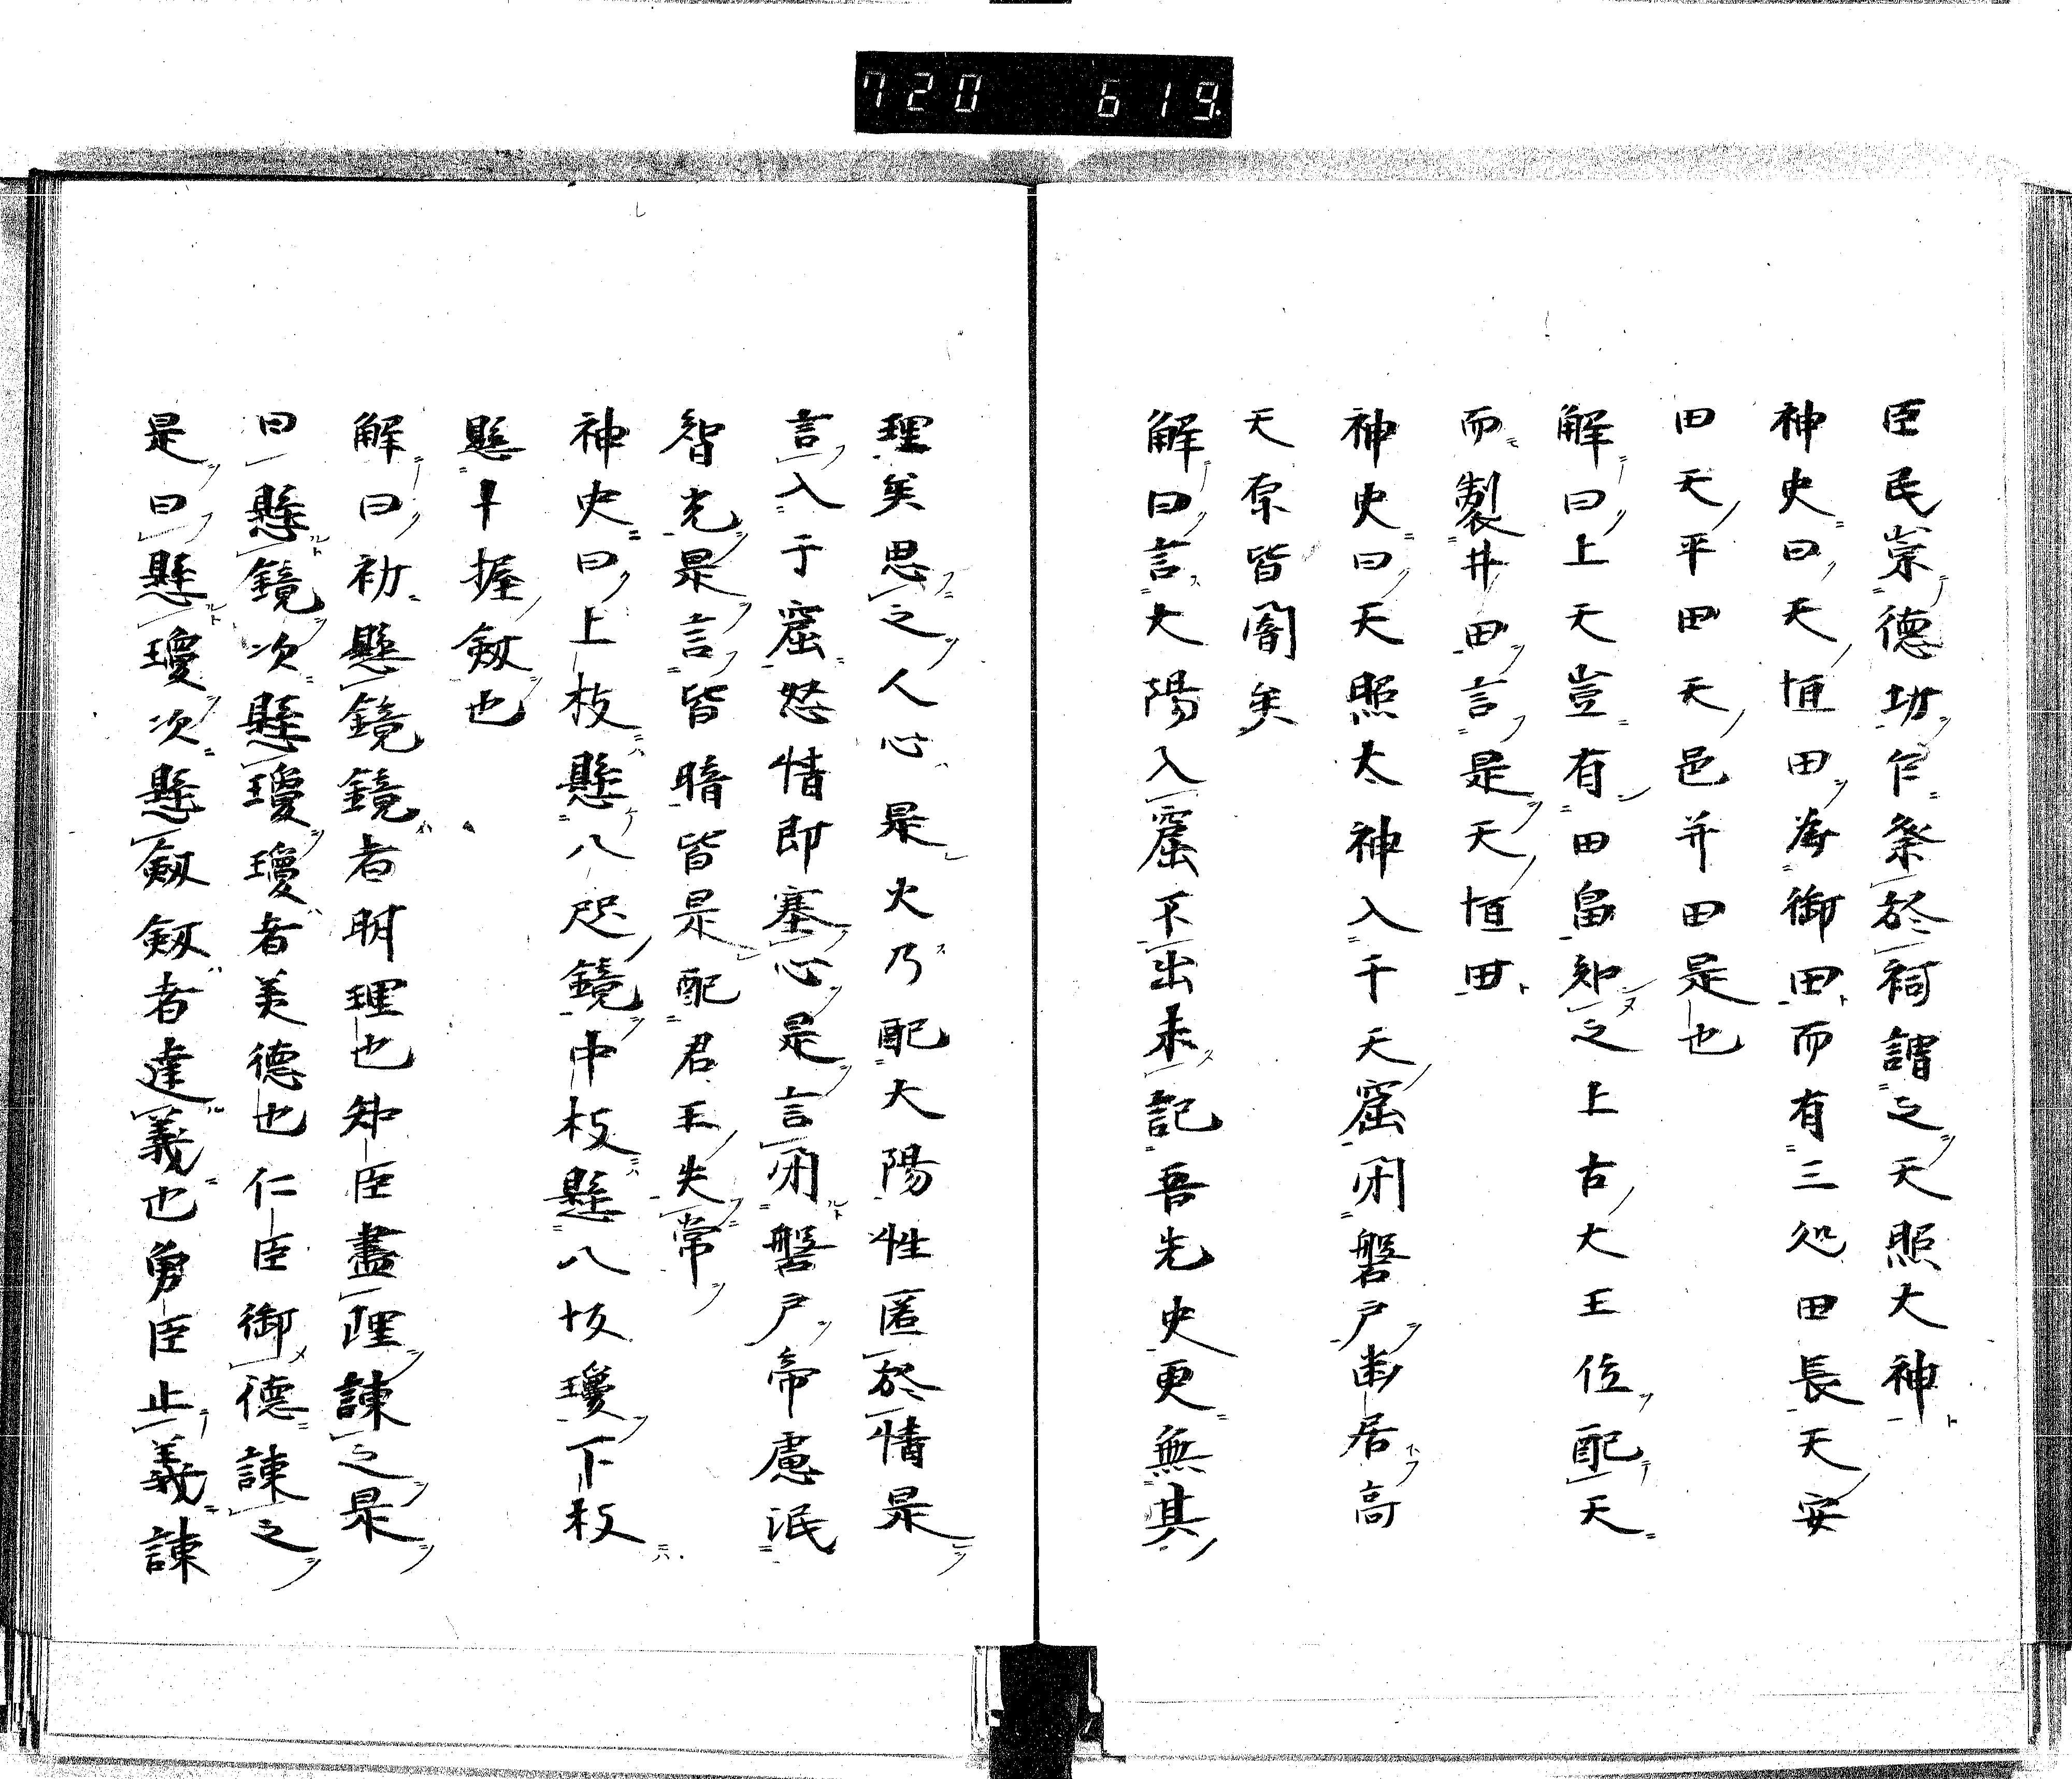 720 619.
臣民崇德功乍祭於祠謂之天照大神
神史曰天恒田為御田而有三処田長天安
田天平田天邑并田是也
解曰上天豈有田畠知之上古大王位配天
而製井田言是天恒田
神史曰天照大神入于天窟閇磐戸幽居高
天原皆闇矣
解曰言大陽入窟不出未記吾先史更無其
理矣思之人心是火乃配大陽性匿於情是
言入于窟怒情即塞心是言閇磐戸帝慮泯
智光是言皆暗皆是配君王失常
神史曰上枝懸八咫鏡中枝懸八坂瓊下枝
懸十握劔也
解曰初懸鏡鏡者明理也知臣盡理諫之是
曰懸鏡次懸瓊瓊者美德也仁臣御德諫之
是曰懸瓊次懸劔劔者達義也勇臣止義諫